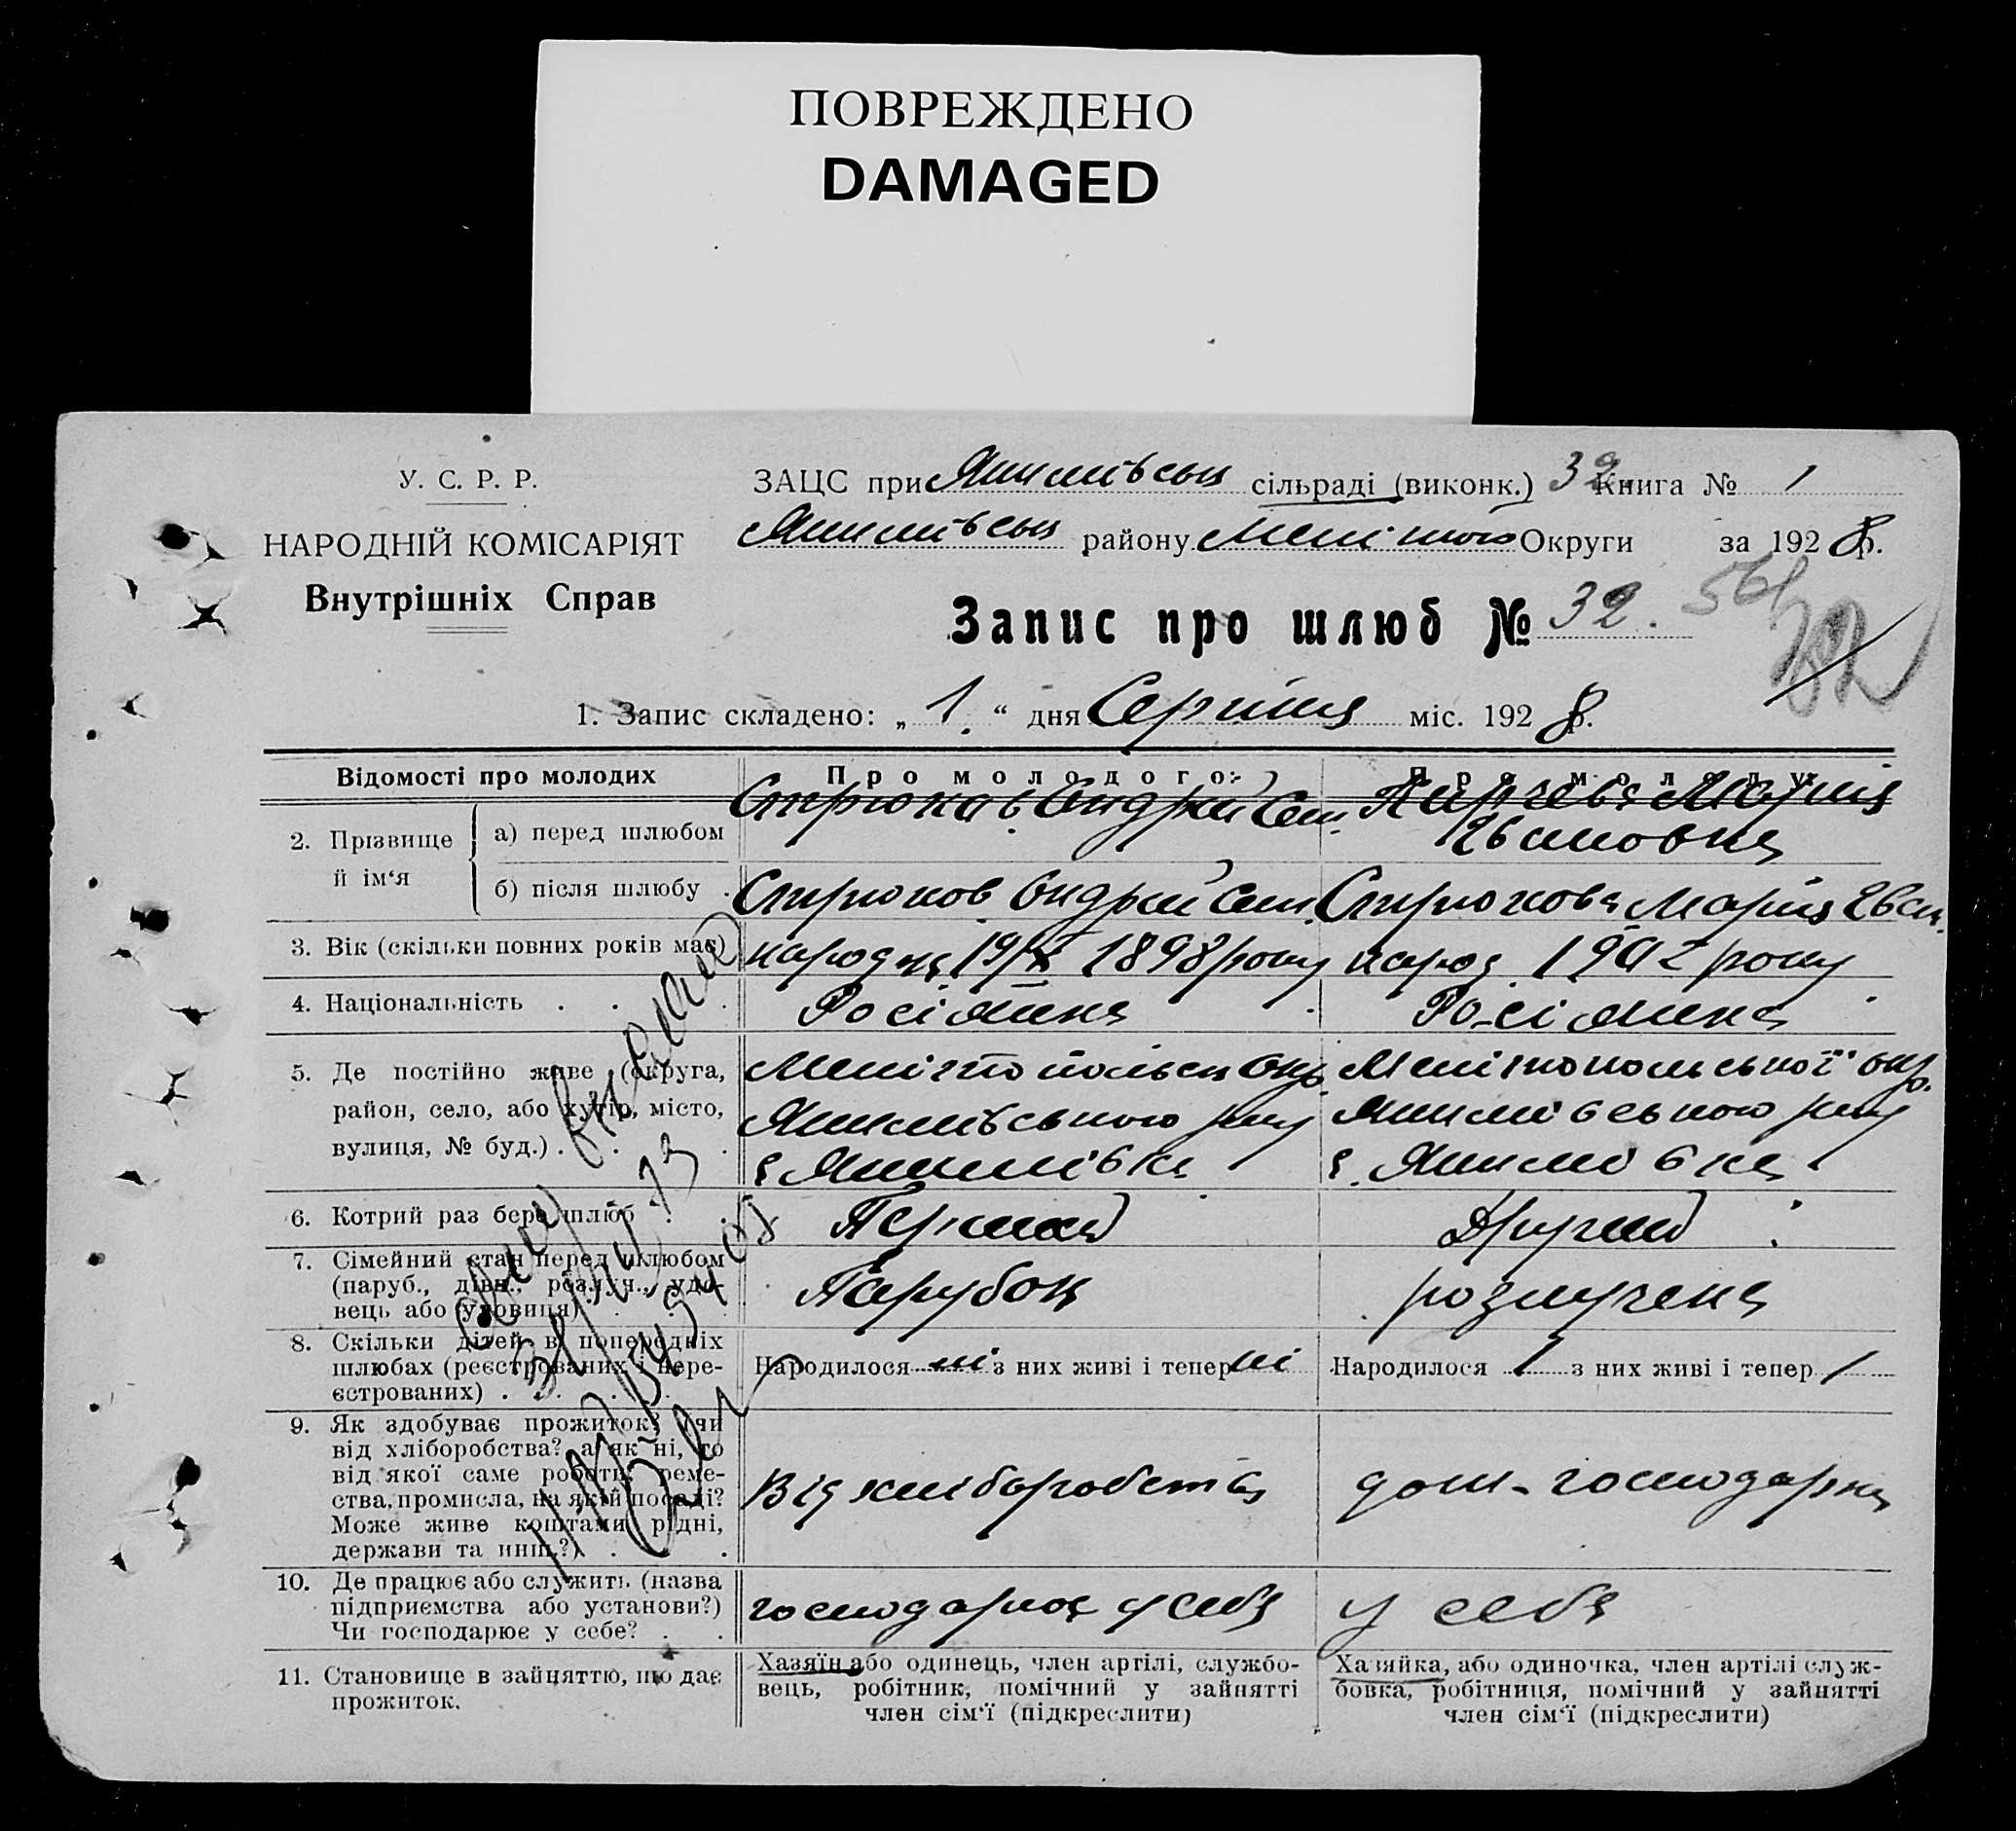 ПОВРЕЖДЕНО
DAMAGED
У. С. Р. Р.
НАРОДНІЙ КОМІСАРІЯТ
Внутрішніх Справ
ЗАЦС при Якимівськ сільраді (виконк.) 32 Книга № 1
Якимівськ району Меліт Округи за 1928 р.
Запис про шлюб № 32.
1. Запис складено: „ 1. “ дня Серпня міс. 1928 р.
Відомості про молодих
Про молодого:
Про молоду:
2. Прізвище й ім‘я
а) перед шлюбом
Андрій Сем.
Марія
б) після шлюбу
Андрій Сем.
Марія
3. Вік (скільки повних років має)
1898 року
народ. 1902 року
4. Національність
Росіянин
Росіянка
5. Де постійно живе (округа,
район, село, або хутір, місто,
вулиця, № буд.)
Мелітопольськ окр.
Якимівського р-ну
с Якимівка
Мелітопольської окр.
Якимівського р-ну
с. Якимівка
6. Котрий раз бере шлюб
Перший
Другий
7. Сімейний стан перед шлюбом
(паруб., дівч., розлуч., удо-
вець або удовиця)
Парубок
розлучена
8. Скільки дітей в попередніх
шлюбах (реєстрованих і нере-
єстрованих)
Народилося ні з них живі і тепер ні
Народилося 1 з них живі і тепер 1
9. Як здобуває прожиток? (чи
від хліборобства? а як ні, то
від якої саме роботи, реме-
ства, промисла, на якій посаді?
Може живе коштами рідні,
держави та инш.?)
Від хліборобства
дом-господарка
10. Де працює або служить (назва
підприємства або установи?)
Чи господарює у себе?
господарює у себя
у себя
11. Становище в зайняттю, що дає
прожиток.
Хазяїн або одинець, член артілі, службо-
вець, робітник, помічний у зайнятті
член сім‘ї (підкреслити)
Хазяйка, або одиночка, член артілі служ-
бовка, робітниця, помічний у зайнятті
член сім‘ї (підкреслити)